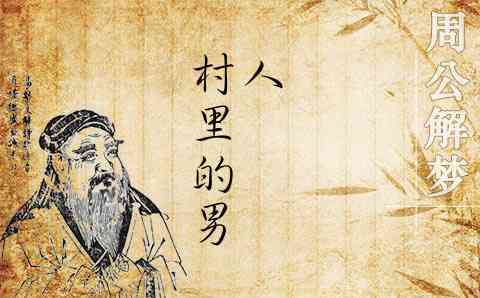 周公解梦
村里的男
人